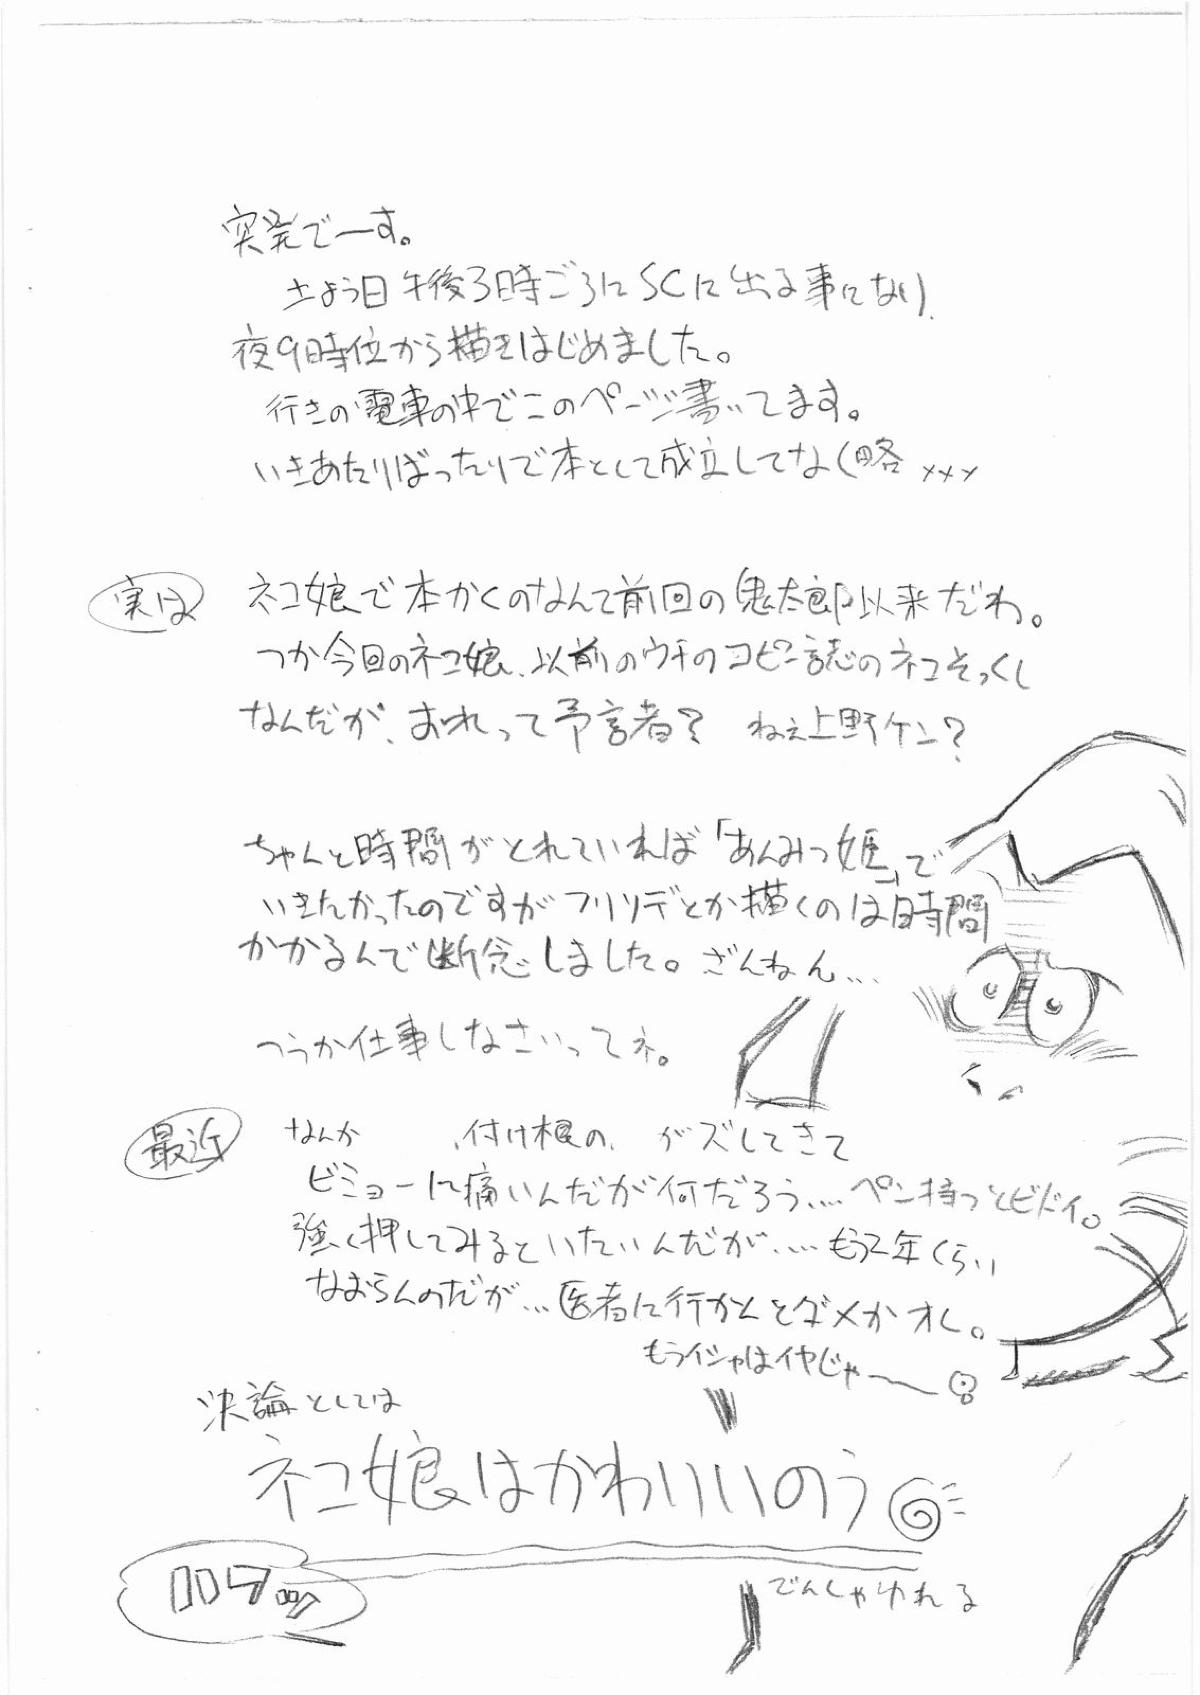 突発でーす。
土よう日午後3時ごろにSCに出る事になり、
夜9時位から描きはじめました。
行きの電車の中でこのページ書いてます。
いきあたりばったりで本として成立してなく(略 xxx
実は
ネコ娘で本かくのなんて前回の鬼太郎以来だわ。
つか今回のネコ娘、以前のウチのコピー誌のネコそっくし
なんだが、おれって予言者? ねえ上野ケン?
ちゃんと時間がとれていれば「あんみつ姫」で
いきたかったのですがフリソデとか描くのは時間
かかるんで断念しました。ざんねん…
つうか仕事しなさいってネ。
最近
なんか 、付け根の、 がズしてきて
ビミョーに痛いんだが何だろう…. ペン持つとヒドイ。
強く押してみるといたいんだが…. もう2年くらい
なおらんのだが… 医者に行かんとダメかオレ。
もうイシャはイヤじゃー
決論としては
ネコ娘はかわいいのう
でんしゃゆれる